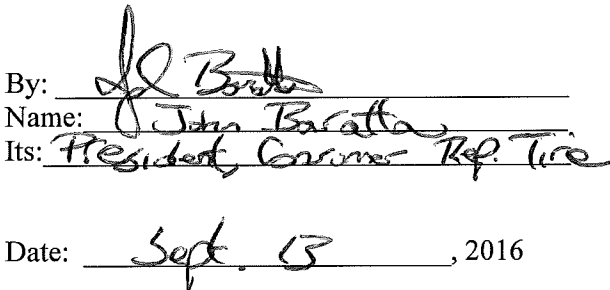 By: Jol Baratta
Name: John Baratta
Its: President, Consumer Rep. Tire
Date: Sept. 13, 2016